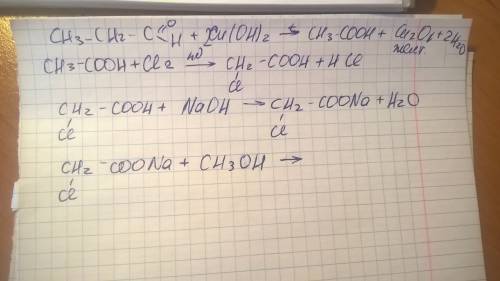 CH3-CH2-C=OH + 2Cu(OH)2 →t CH3-COOH + Cu2O↓ + 2H2O
желт
CH3-COOH + Cl2 →hν CH2-COOH + HCl
Cl
CH2-COOH + NaOH → CH2-COONa + H2O
Cl Cl
CH2-COONa + CH3OH →
Cl